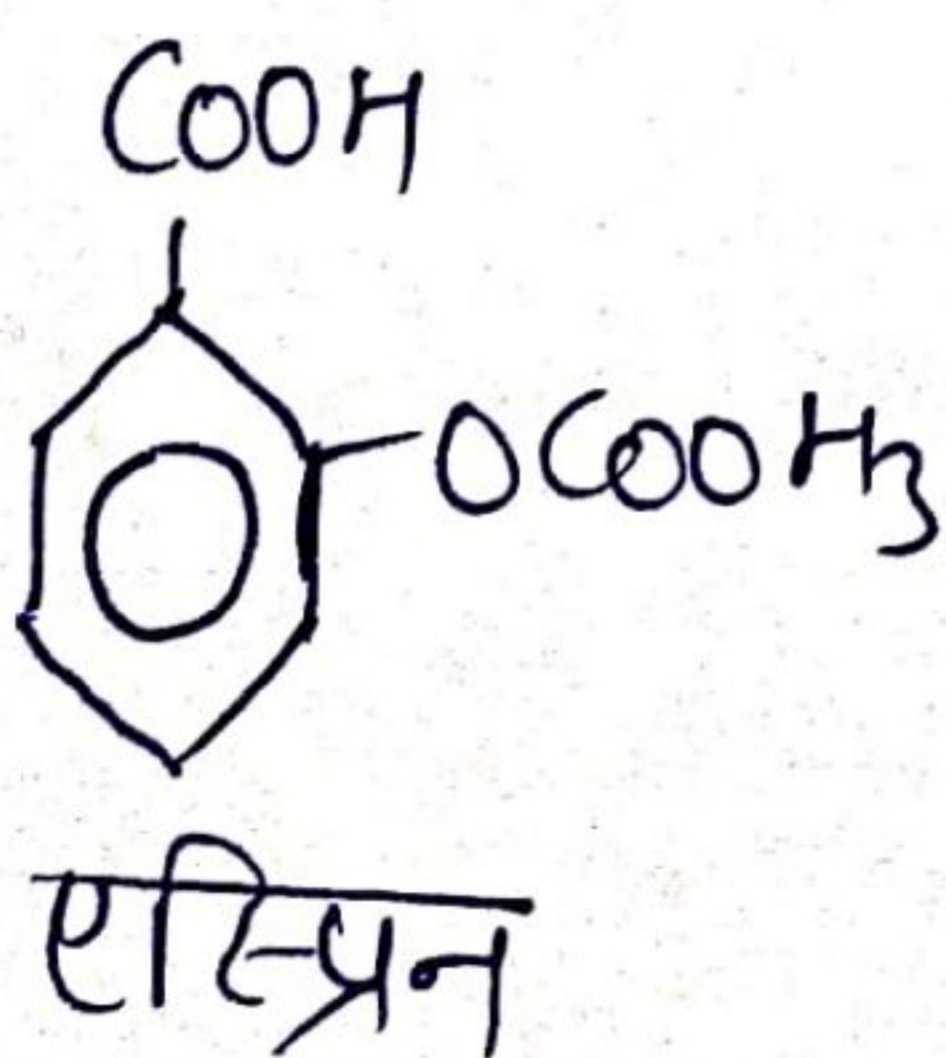 COOH
OCOOH3
एस्प्रिन